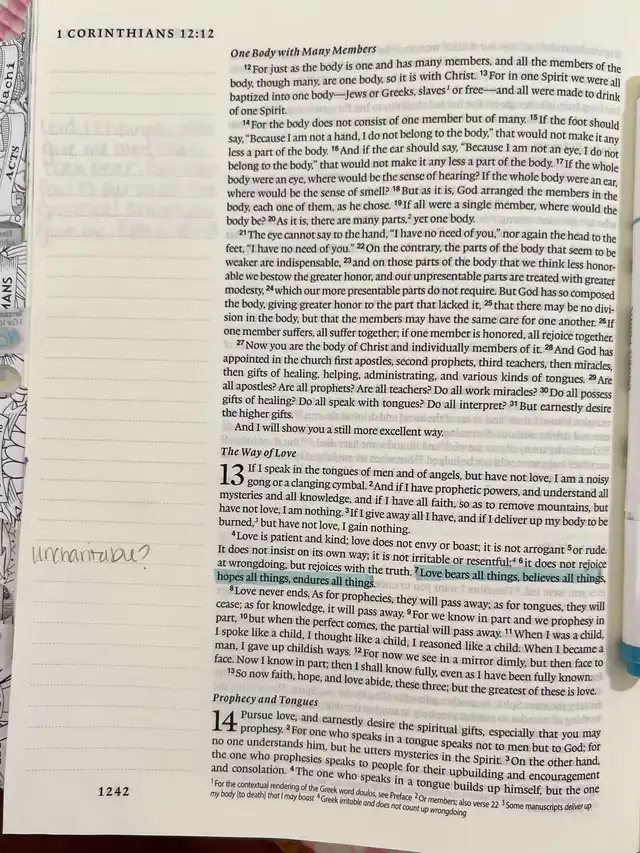 1 CORINTHIANS 12:12
One Body with Many Members
12 For just as the body is one and has many members, and all the members of the
body, though many, are one body, so it is with Christ. 13 For in one Spirit we were all
baptized into one body—Jews or Greeks, slaves1 or free—and all were made to drink
of one Spirit.
14 For the body does not consist of one member but of many. 15 If the foot should
say, “Because I am not a hand, I do not belong to the body,” that would not make it any
less a part of the body. 16 And if the ear should say, “Because I am not an eye, I do not
belong to the body,” that would not make it any less a part of the body. 17 If the whole
body were an eye, where would be the sense of hearing? If the whole body were an ear,
where would be the sense of smell? 18 But as it is, God arranged the members in the
body, each one of them, as he chose. 19 If all were a single member, where would the
body be? 20 As it is, there are many parts,2 yet one body.
21 The eye cannot say to the hand, “I have no need of you,” nor again the head to the
feet, “I have no need of you.” 22 On the contrary, the parts of the body that seem to be
weaker are indispensable, 23 and on those parts of the body that we think less honor-
able we bestow the greater honor, and our unpresentable parts are treated with greater
modesty, 24 which our more presentable parts do not require. But God has so composed
the body, giving greater honor to the part that lacked it, 25 that there may be no divi-
sion in the body, but that the members may have the same care for one another. 26 If
one member suffers, all suffer together; if one member is honored, all rejoice together.
27 Now you are the body of Christ and individually members of it. 28 And God has
appointed in the church first apostles, second prophets, third teachers, then miracles,
then gifts of healing, helping, administrating, and various kinds of tongues. 29 Are
all apostles? Are all prophets? Are all teachers? Do all work miracles? 30 Do all possess
gifts of healing? Do all speak with tongues? Do all interpret? 31 But earnestly desire
the higher gifts.
And I will show you a still more excellent way.
The Way of Love
13 If I speak in the tongues of men and of angels, but have not love, I am a noisy
gong or a clanging cymbal. 2 And if I have prophetic powers, and understand all
mysteries and all knowledge, and if I have all faith, so as to remove mountains, but
have not love, I am nothing. 3 If I give away all I have, and if I deliver up my body to be
burned,3 but have not love, I gain nothing.
4 Love is patient and kind; love does not envy or boast; it is not arrogant 5 or rude.
It does not insist on its own way; it is not irritable or resentful;4 6 it does not rejoice
at wrongdoing, but rejoices with the truth. 7 Love bears all things, believes all things,
hopes all things, endures all things.
8 Love never ends. As for prophecies, they will pass away; as for tongues, they will
cease; as for knowledge, it will pass away. 9 For we know in part and we prophesy in
part, 10 but when the perfect comes, the partial will pass away. 11 When I was a child,
I spoke like a child, I thought like a child, I reasoned like a child. When I became a
man, I gave up childish ways. 12 For now we see in a mirror dimly, but then face to
face. Now I know in part; then I shall know fully, even as I have been fully known.
13 So now faith, hope, and love abide, these three; but the greatest of these is love.
Prophecy and Tongues
14 Pursue love, and earnestly desire the spiritual gifts, especially that you may
prophesy. 2 For one who speaks in a tongue speaks not to men but to God; for
no one understands him, but he utters mysteries in the Spirit. 3 On the other hand,
the one who prophesies speaks to people for their upbuilding and encouragement
and consolation. 4 The one who speaks in a tongue builds up himself, but the one
1 For the contextual rendering of the Greek word doulos, see Preface 2 Or members; also verse 22 3 Some manuscripts deliver up
my body [to death] that I may boast 4 Greek irritable and does not count up wrongdoing
Uncharitable?
1242
ACTS